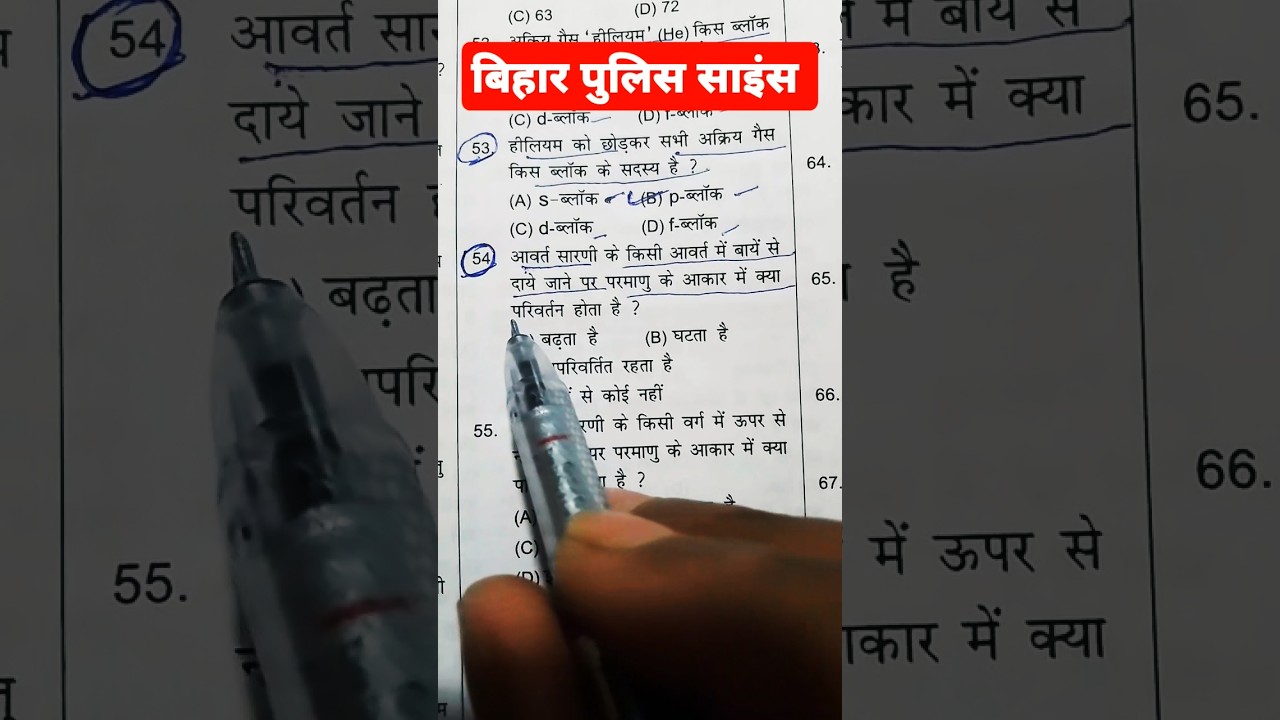 (C) 63 (D) 72
अक्रिय गैस 'हीलियम' (He) किस ब्लॉक
बिहार पुलिस साइंस
(C) d-ब्लॉक (D) f-ब्लॉक
53 हीलियम को छोड़कर सभी अक्रिय गैस
किस ब्लॉक के सदस्य है ?
(A) s-ब्लॉक (B) p-ब्लॉक
(C) d-ब्लॉक (D) f-ब्लॉक
54 आवर्त सारणी के किसी आवर्त में बायें से
दाये जाने पर परमाणु के आकार में क्या
परिवर्तन होता है ?
बढ़ता है (B) घटता है
परिवर्तित रहता है
से कोई नहीं
55. के किसी वर्ग में ऊपर से
पर परमाणु के आकार में क्या
है ?
(A)
(C)
(D)
64.
65.
66.
67.
54 आवर्त
दाये जाने
परिवर्तन
बढ़ता
55.
में बायें से
में क्या
65.
है
66.
में ऊपर से
आकार में क्या